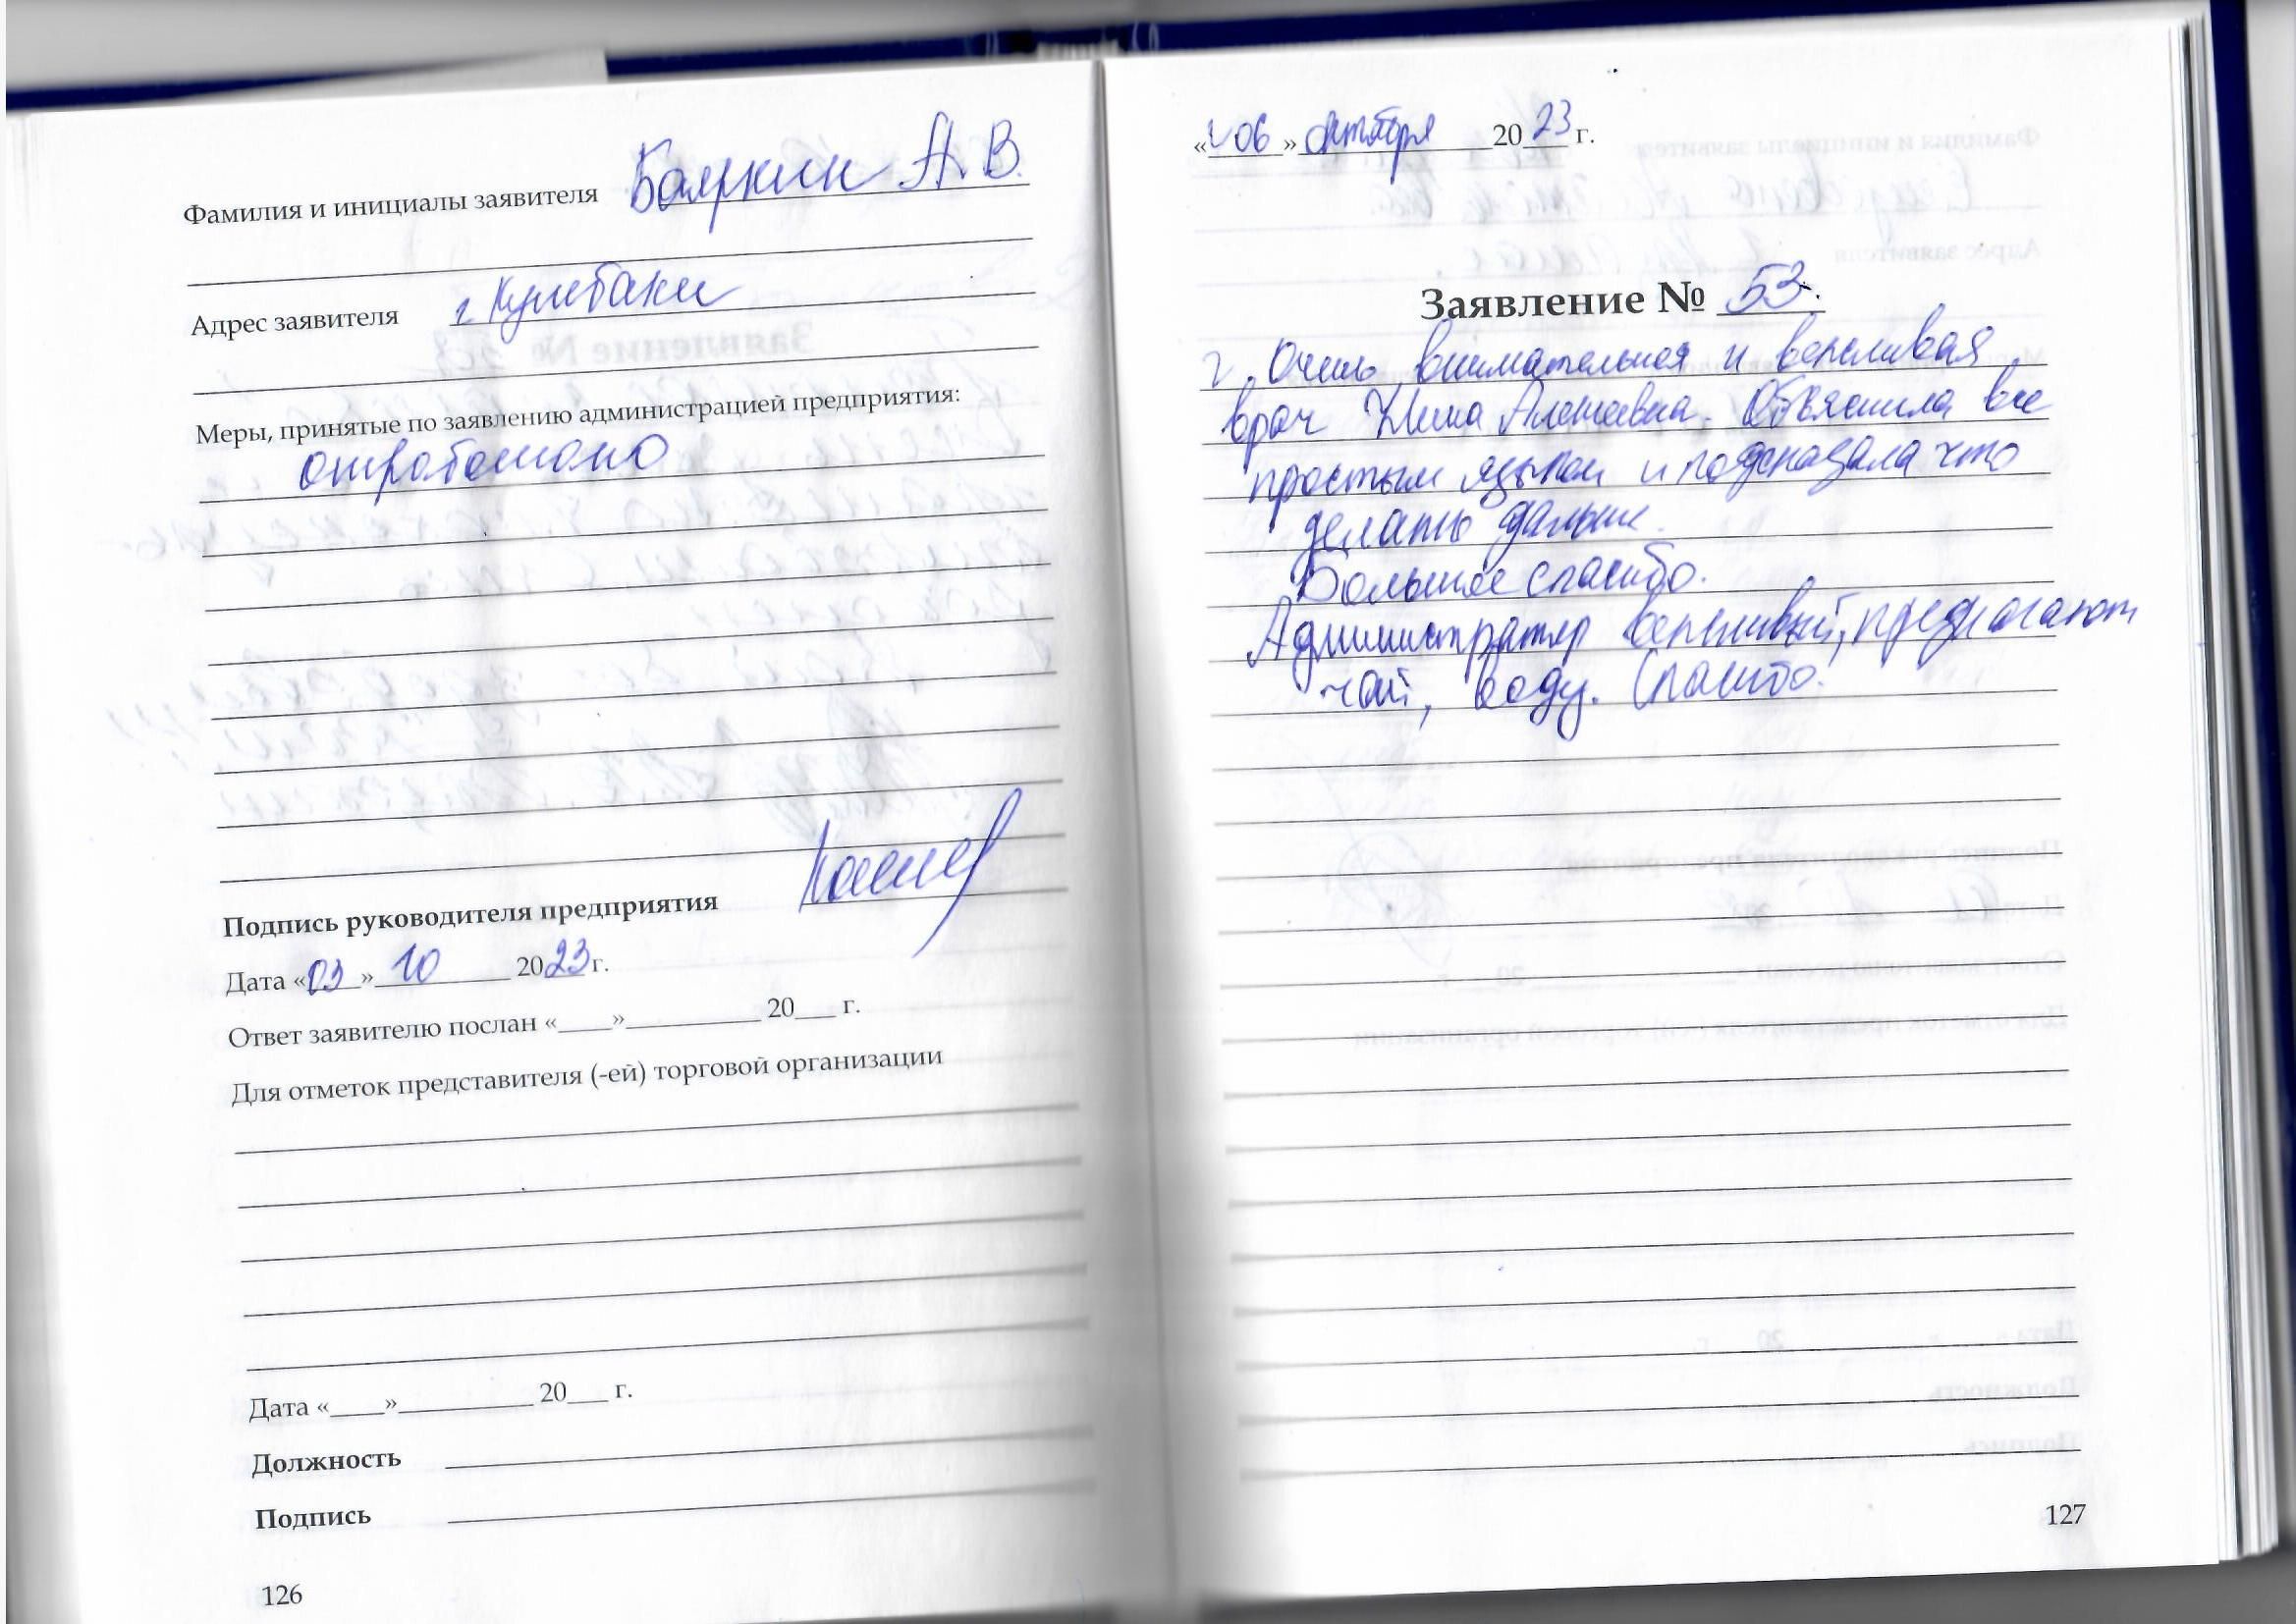 Фамилия и инициалы заявителя Бояркин А. В.
Адрес заявителя г. Кулебаки
Меры, принятые по заявлению администрацией предприятия:
отработано
Подпись руководителя предприятия
Дата «03» 10 2023 г.
Ответ заявителю послан «____»__________ 20___ г.
Для отметок представителя (-ей) торговой организации
Дата «____»__________ 20___ г.
Должность
Подпись
126
«06» октября 2023 г.
Заявление № 53.
Очень внимательная и вежливая
врач Алексеевна. Объяснила все
простым языком и подсказала что
делать дальше.
Большое спасибо.
Администратор вежливый, предлагают
чай, воду. Спасибо.
127